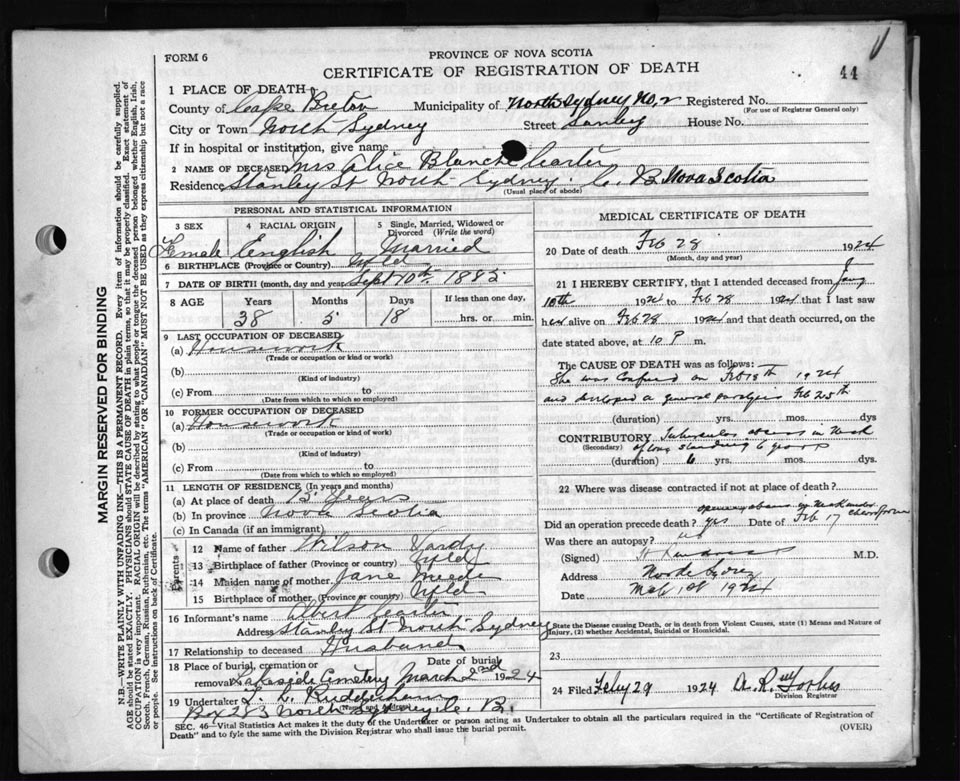 FORM 6
PROVINCE OF NOVA SCOTIA
CERTIFICATE OF REGISTRATION OF DEATH
44
1 PLACE OF DEATH
County of Cape Breton Municipality of North Sydney No. 2 Registered No.
(For use of Registrar General only)
City or Town North Sydney Street Stanley House No.
If in hospital or institution, give name
2 NAME OF DECEASED Mrs Alice Blanche Carter
Residence Stanley St North Sydney. C. B. Nova Scotia
(Usual place of abode)
PERSONAL AND STATISTICAL INFORMATION
3 SEX 4 RACIAL ORIGIN 5 Single, Married, Widowed or Divorced (Write the word)
Female English Married
6 BIRTHPLACE (Province or Country) Nfld
7 DATE OF BIRTH (month, day and year) Sept 10th 1885
8 AGE Years Months Days If less than one day,
38 5 18 hrs. or min.
9 LAST OCCUPATION OF DECEASED
(a) Housework
(Trade or occupation or kind or work)
(b)
(Kind of industry)
(c) From to
(Date from which to which so employed)
10 FORMER OCCUPATION OF DECEASED
(a) Housework
(Trade or occupation or kind of work)
(b)
(Kind of industry)
(c) From to
(Date from which to which so employed)
11 LENGTH OF RESIDENCE (In years and months)
(a) At place of death 15 Years
(b) In province Nova Scotia
(c) In Canada (if an immigrant)
Parents
12 Name of father Wilson Vardy
13 Birthplace of father (Province or Country) Nfld
14 Maiden name of mother Jane
15 Birthplace of mother (Province or Country) Nfld
16 Informant's name Albert Carter
Address Stanley St North Sydney
17 Relationship to deceased Husband
18 Place of burial, cremation or removal Lakeside Cemetery Date of burial March 2nd 1924
19 Undertaker
(Name and Address)
Box North Sydney C. B.
MEDICAL CERTIFICATE OF DEATH
20 Date of death Feb 28 1924
(Month, day and year)
21 I HEREBY CERTIFY, that I attended deceased from Jany
10th 1924 to Feb 28 1924 that I last saw
her alive on Feb 28 1924 and that death occurred, on the
date stated above, at 10 P m.
The CAUSE OF DEATH was as follows:
She was confined on Feb 18th 1924
and developed a general paralysis Feb 25th
(duration) yrs. mos. dys
CONTRIBUTORY Tubercular abscess in Neck
(Secondary) of long standing 6 years
(duration) 6 yrs. mos. dys.
22 Where was disease contracted if not at place of death?
opening abscess in Neck under chloroform
Did an operation precede death? yes Date of Feb 17
Was there an autopsy?
(Signed) M.D.
Address North Sydney
Date 1st 1924
State the Disease causing Death, or in death from Violent Causes, state (1) Means and Nature of
Injury, (2) whether Accidental, Suicidal or Homicidal.
23
24 Filed Feby 29 1924 Forbes
Division Registrar
SEC. 46—Vital Statistics Act makes it the duty of the Undertaker or person acting as Undertaker to obtain all the particulars required in the "Certificate of Registration of
Death" and to fyle the same with the Division Registrar who shall issue the burial permit.
(OVER)
MARGIN RESERVED FOR BINDING
N.B.—WRITE PLAINLY WITH UNFADING INK—THIS IS A PERMANENT RECORD. Every item of information should be carefully supplied.
AGE should be stated EXACTLY. PHYSICIANS should STATE CAUSE OF DEATH in plain terms, so that it may be properly classified. Exact statement of
OCCUPATION is very important. RACIAL ORIGIN will be described by stating to what people or tongue the deceased person belonged whether English, Irish,
Scotch, French, German, Russian, Ruthenian, etc. The terms "AMERICAN" or "CANADIAN" MUST NOT BE USED as they express citizenship but not a race
or people. See instructions on back of Certificate.